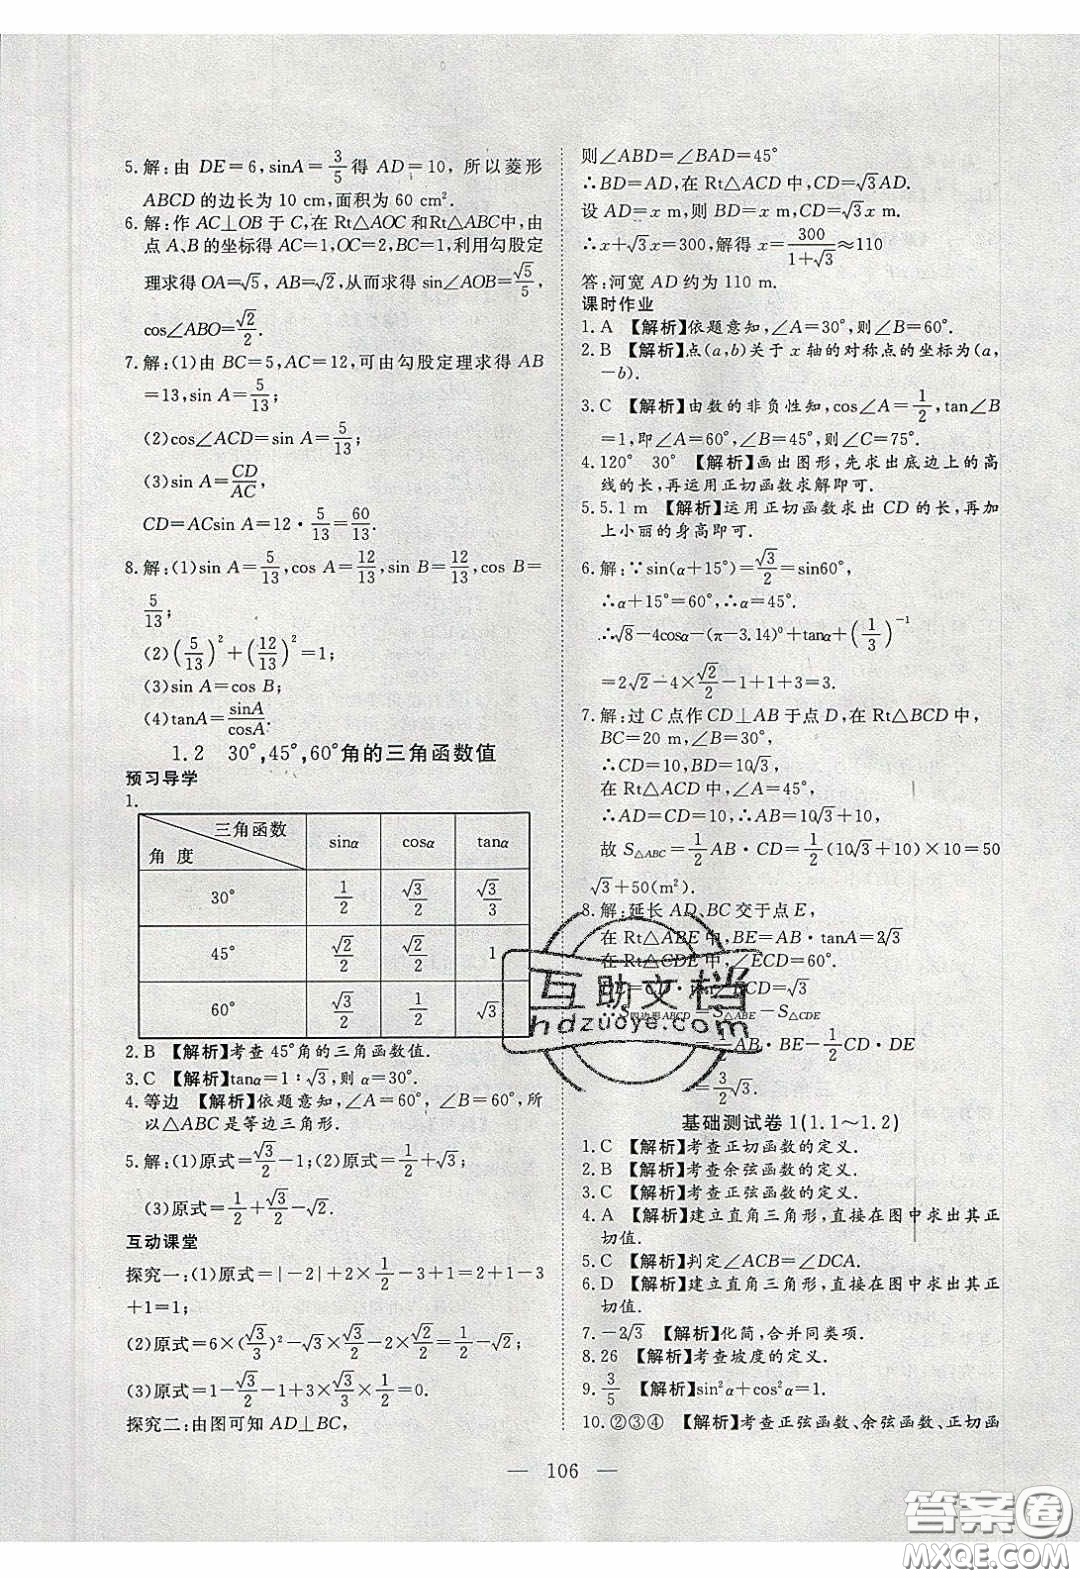 5.解:由 DE=6,sinA=3/5得 AD=10, 所以菱形
ABCD 的边长为 10 cm,面积为 60 cm².
6.解:作 AC⊥OB 于 C,在 Rt△AOC 和Rt△ABC中,由
点 A、B 的坐标得 AC=1,OC=2,BC=1,利用勾股定
理求得 OA=√5, AB=√2,从而求得 sin∠AOB=√5/5,
cos∠ABO=√2/2.
7.解:(1)由 BC=5,AC=12,可由勾股定理求得 AB
=13,sin A=5/13;
(2)cos∠ACD=sin A=5/13;
(3)sin A=CD/AC,
CD=ACsin A=12·5/13=60/13.
8.解:(1)sin A=5/13,cos A=12/13,sin B=12/13,cos B=
5/13;
(2)(5/13)²+(12/13)²=1;
(3)sin A=cos B;
(4)tanA=sinA/cosA.
1.2 30°,45°,60°角的三角函数值
预习导学
1.
三角函数 角 度 sinα cosα tanα
30° 1/2 √3/2 √3/3
45° √2/2 √2/2 1
60° √3/2 1/2 √3
2.B 【解析】考查 45°角的三角函数值.
3.C 【解析】tanα=1∶√3,则 α=30°.
4.等边 【解析】依题意知,∠A=60°,∠B=60°,所
以△ABC 是等边三角形.
5.解:(1)原式=√3/2-1;(2)原式=√2/2+√3;
(3)原式=1/2+√3/2-√2.
互动课堂
探究一:(1)原式=|-2|+2×1/2-3+1=2+1-3
+1=1;
(2)原式=6×(√3/3)²-√3×√3/2-2×√2/2=1/2-√2;
(3)原式=1-√3/2-1+3×√3/2×1/2=0.
探究二:由图可知 AD⊥BC,
则∠ABD=∠BAD=45°
∴BD=AD,在 Rt△ACD 中,CD=√3AD.
设 AD=x m,则 BD=x m,CD=√3x m.
∴x+√3x=300,解得 x=300/(1+√3)≈110
答:河宽 AD 约为 110 m.
课时作业
1.A 【解析】依题意知,∠A=30°,则∠B=60°.
2.B 【解析】点(a,b)关于 x 轴的对称点的坐标为(a,
-b).
3.C 【解析】由数的非负性知,cos∠A=1/2,tan∠B
=1,即∠A=60°,∠B=45°,则∠C=75°.
4.120° 30° 【解析】画出图形,先求出底边上的高
线的长,再运用正切函数求解即可.
5.5.1 m 【解析】运用正切函数求出 CD 的长,再加
上小丽的身高即可.
6.解:∵sin(α+15°)=√3/2=sin60°,
∴α+15°=60°,∴α=45°.
∴√8-4cosα-(π-3.14)⁰+tanα+(1/3)⁻¹
=2√2-4×√2/2-1+1+3=3.
7.解:过 C 点作 CD⊥AB 于点 D,在 Rt△BCD 中,
BC=20 m,∠B=30°,
∴CD=10,BD=10√3,
在 Rt△ACD 中,∠A=45°,
∴AD=CD=10,∴AB=10√3+10,
故 S△ABC=1/2AB·CD=1/2(10√3+10)×10=50
√3+50(m²).
8.解:延长 AD、BC 交于点 E,
在 Rt△ABE 中,BE=AB·tanA=2√3
在 Rt△CDE 中,∠ECD=60°.
=√3
∴S四边形ABCD=S△ABE-S△CDE
=1/2AB·BE-1/2CD·DE
=3/2√3.
基础测试卷 1(1.1~1.2)
1.C 【解析】考查正切函数的定义.
2.B 【解析】考查余弦函数的定义.
3.C 【解析】考查正弦函数的定义.
4.A 【解析】建立直角三角形,直接在图中求出其正
切值.
5.C 【解析】判定∠ACB=∠DCA.
6.D 【解析】建立直角三角形,直接在图中求出其正
切值.
7.-2√3 【解析】化简,合并同类项.
8.26 【解析】考查坡度的定义.
9.3/5 【解析】sin²α+cos²α=1.
10.②③④ 【解析】考查正弦函数、余弦函数、正切函
— 106 —
互助文档
hdzuoye.com
答案圈
MXQE.COM